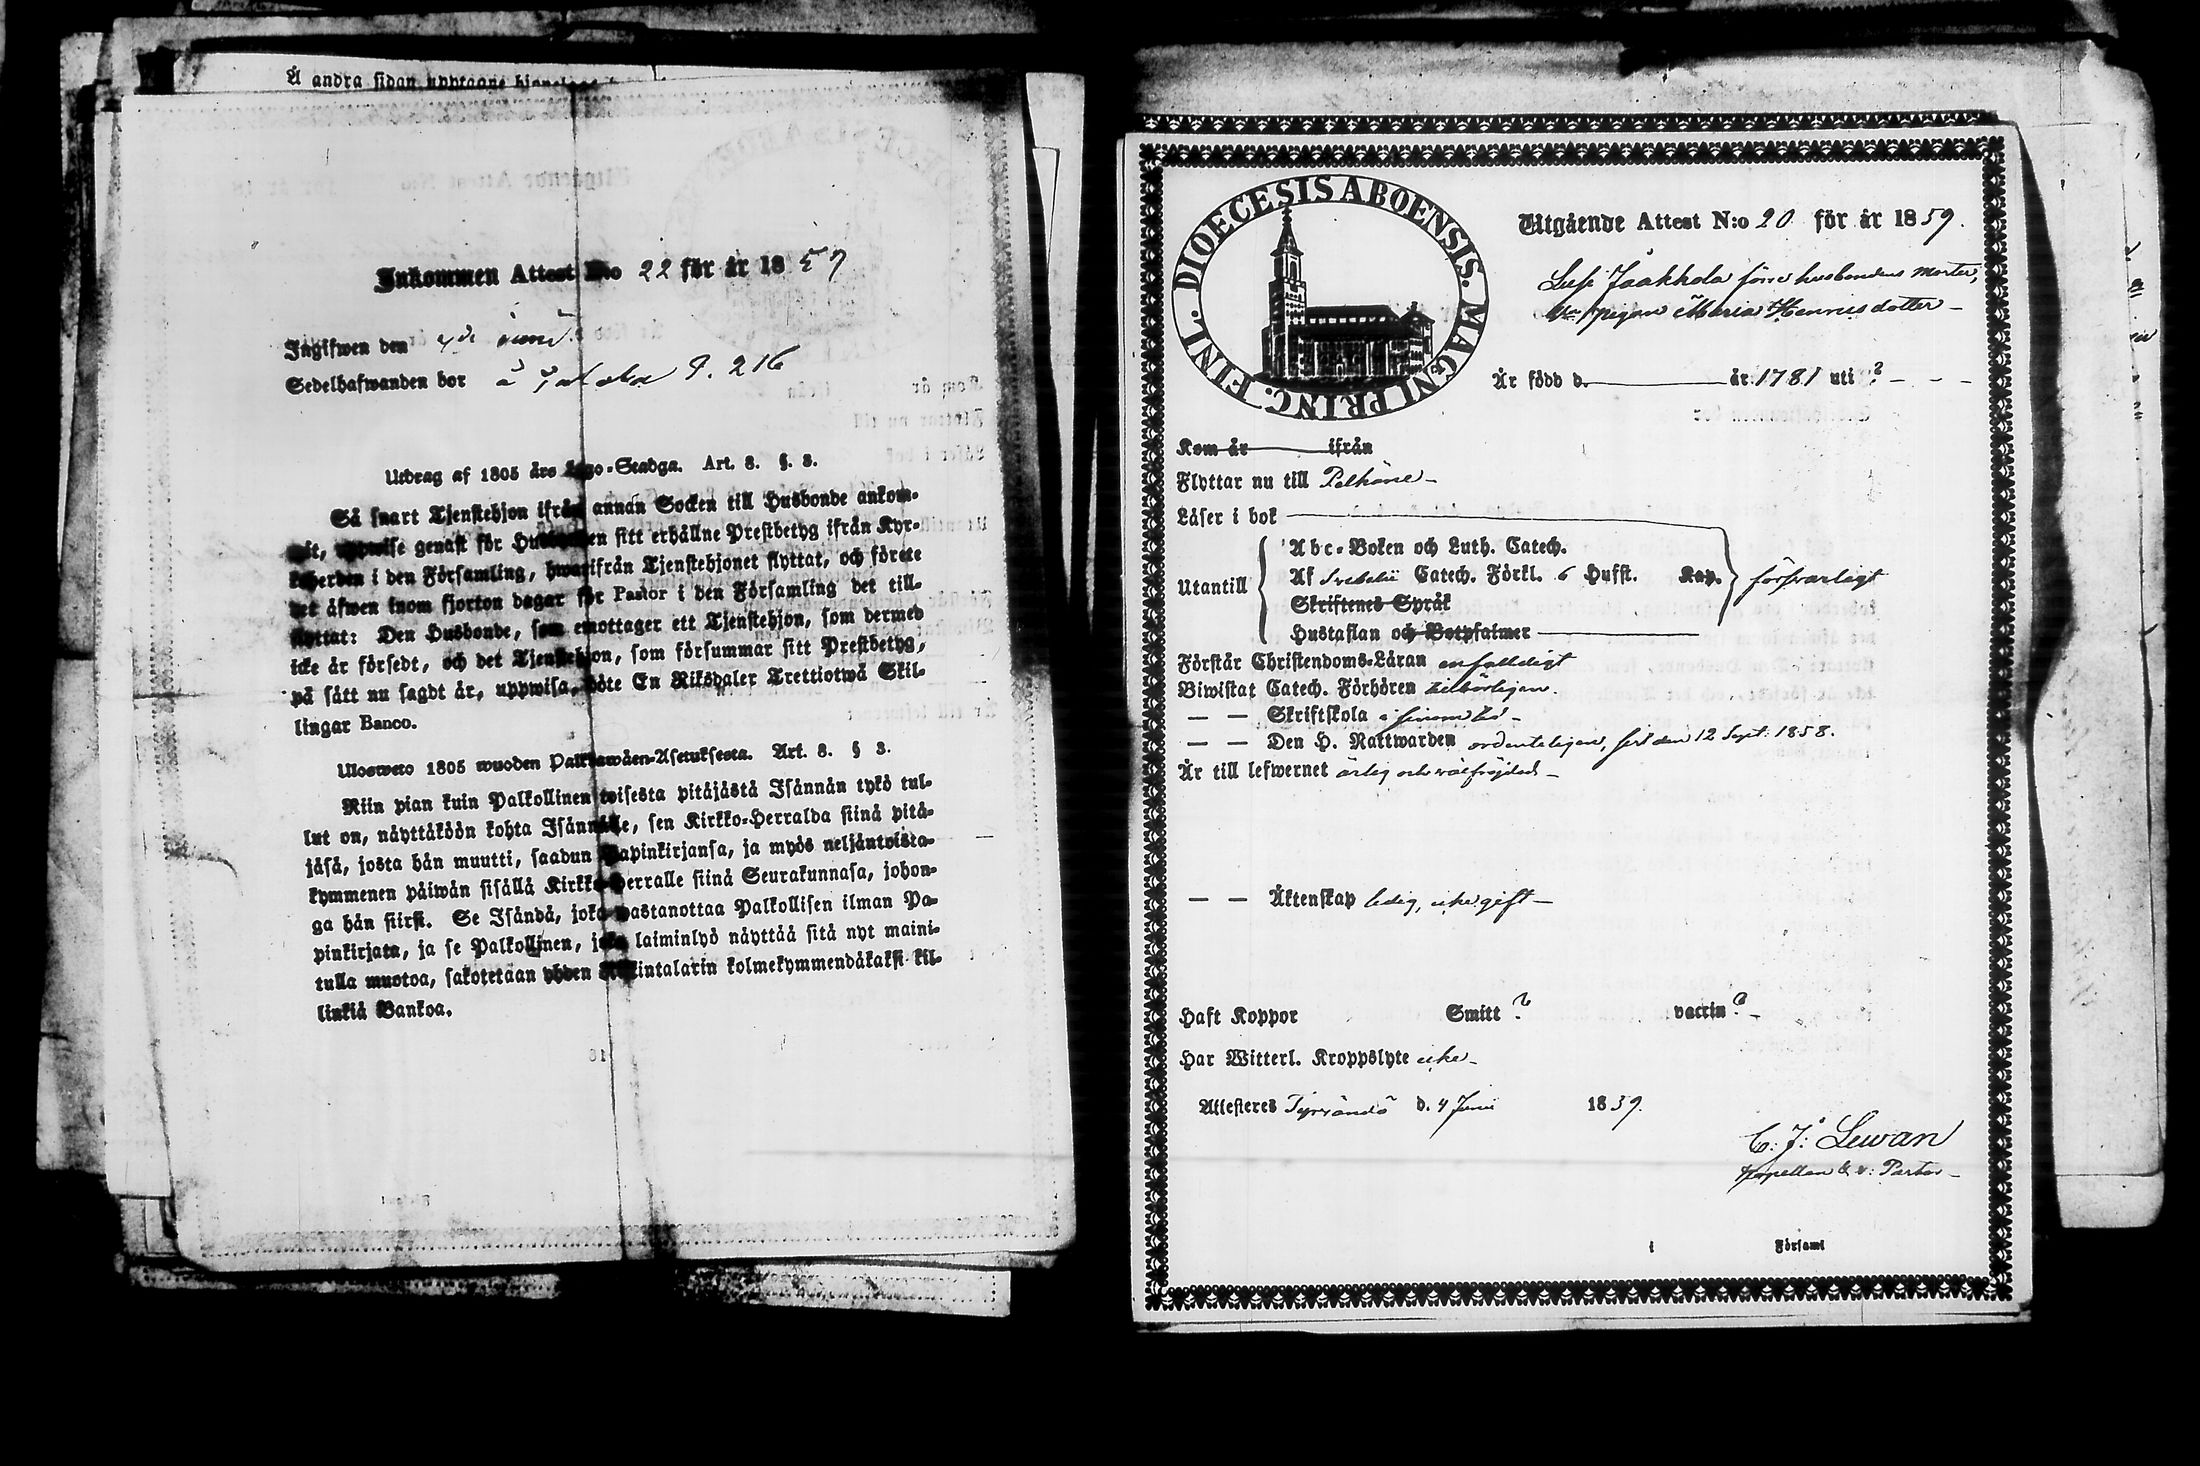 Å andra sidan upptagne
Inkommen Attest No 22 för år 1859
Ingifwen den juni
Sedelhafwanden bor å P. 216
Utdrag af 1805 års Lego-Stadga. Art. 8. §. 3.
Så snart Tjenstehjon ifrån annan Socken till Husbonde ankom-
mit, uppwise genast för Husbonden sitt erhållne Prestbetyg ifrån Kyr-
koherden i den Församling, hwarifrån Tjenstehjonet flyttat, och förete
det äfwen inom fjorton dagar för Pastor i den Församling det till-
flyttat: Den Husbonde, som emottager ett Tjenstehjon, som dermed
icke är försedt, och det Tjenstehjon, som försummar sitt Prestbetyg,
på sätt nu sagdt är, uppwisa, böte En Riksdaler Trettiotwå Skil-
lingar Banco.
Ulosweto 1805 wuoden Palkkawäen-Asetuksesta. Art. 8. § 3.
Niin pian kuin Palkollinen toisesta pitäjästä Isännän tykö tul-
lut on, näyttäköön kohta Isännälle, sen Kirkko-Herralda siinä pitä-
jäsä, josta hän muutti, saadun Papinkirjansa, ja myös neljäntoista-
kymmenen päiwän sisällä Kirkko-Herralle siinä Seurakunnasa, johon-
ga hän siirsi. Se Isändä, joka wastanottaa Palkollisen ilman Pa-
pinkirjata, ja se Palkollinen, joka laiminlyö näyttää sitä nyt maini-
tulla muotoa, sakotetaan yhden Riikintalarin kolmekymmendäkaksi kil-
linkiä Bankoa.
DIOECESIS ABOENSIS. MAGNI PRINC. FINL.
Utgående Attest N:o 20 för år 1859.
Jaakkola förre husbondens moster,
pigan Maria Henricsdotter
Är född d. år 1781 uti ?
Kom år ifrån
Flyttar nu till Pelkäne
Läser i bok
Utantill
Abc-Boken och Luth. Catech.
Af Svebelii Catech. Förkl. 6 Hufst. Kap.
Skriftenes Språk
Hustaflan och Botpsalmer
försvarligt
Förstår Christendoms-Läran enfalldigt
Biwistat Catech. Förhören tilbörligen.
— — Skriftskola i sinom tid
— — Den H. Nattwarden ordenteligen, sist den 12 Sept. 1858.
Är till lefwernet ärlig och välfrejdad
— — Äktenskap ledig, icke gift
Haft Koppor Smitt ? vaccin ?
Har Witterl. Kroppslyte icke
Attesteres Tyrväntö d. 4 Junii 1859.
C: J: Lewan
Kapellan & v: Pastor
i Församl